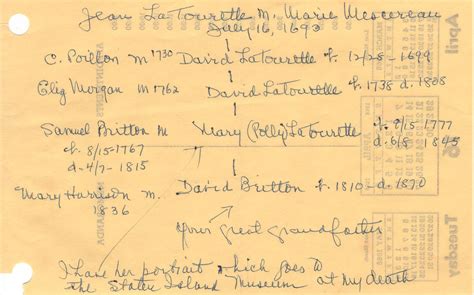 Jean LaTourette m. Marie Mescereau
July 16, 1693
C. Poillon m 1730 David LaTourette b. 12/28-1699
Eliz Morgan m 1762 David LaTourette b. 1738 d. 1808
Samuel Britton m Mary (Polly) LaTourette b. 8/15-1777
b. 8/15-1767 d. 6/8 1845
d-4/7-1815
Mary Harrison m. David Britton b. 1810-d-1870
1836
Your great grandfather
I have her portrait which goes to
the Staten Island Museum at my death
April
Tuesday